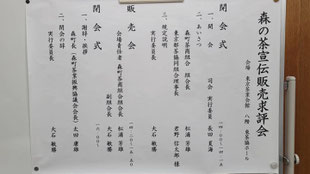 森の茶宣伝販売求評会
会場 東京茶業会館 八階 東茶協ホール
開会式
一、開会 司会 実行委員 長田夏海
二、あいさつ
森町茶商組合 組合長 松浦芳雄
東京都茶協同組合理事長 君野信太郎 様
三、規定説明
実行委員長 大石敏勝
販売会
会場責任者 森町茶商組合組合長 松浦芳雄
副組合長 大石敏勝
閉会式
一、謝辞・挨拶
森町長(森町茶業振興協議会会長) 太田康雄
二、閉会の辞
実行委員長 大石敏勝